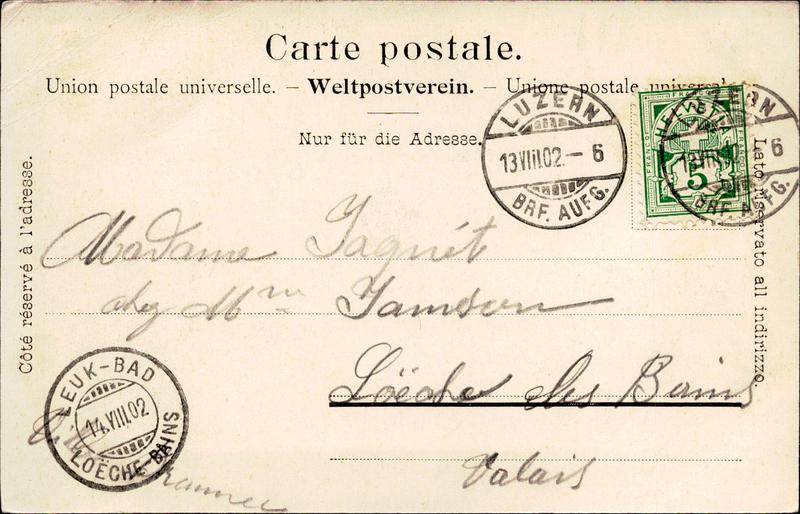 Carte postale.
Union postale universelle. – Weltpostverein. – Unione postale universale
Nur für die Adresse.
LUZERN
13.VIII.02.– 6
BRF. AUFG.
LUZERN
13.VIII.02.– 6
BRF. AUFG.
HELVETIA
FRANCO
5
Côté réservé à l'adresse.
Lato riservato all indirizzo.
Madame Jaquét
chez Mme Jamson
Loëche les Bains
Valais
LEUK-BAD
14.VIII.02
LOËCHE-BAINS